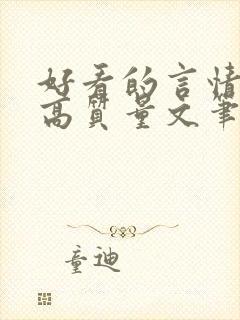 好看的言情
高质量文笔
童迪